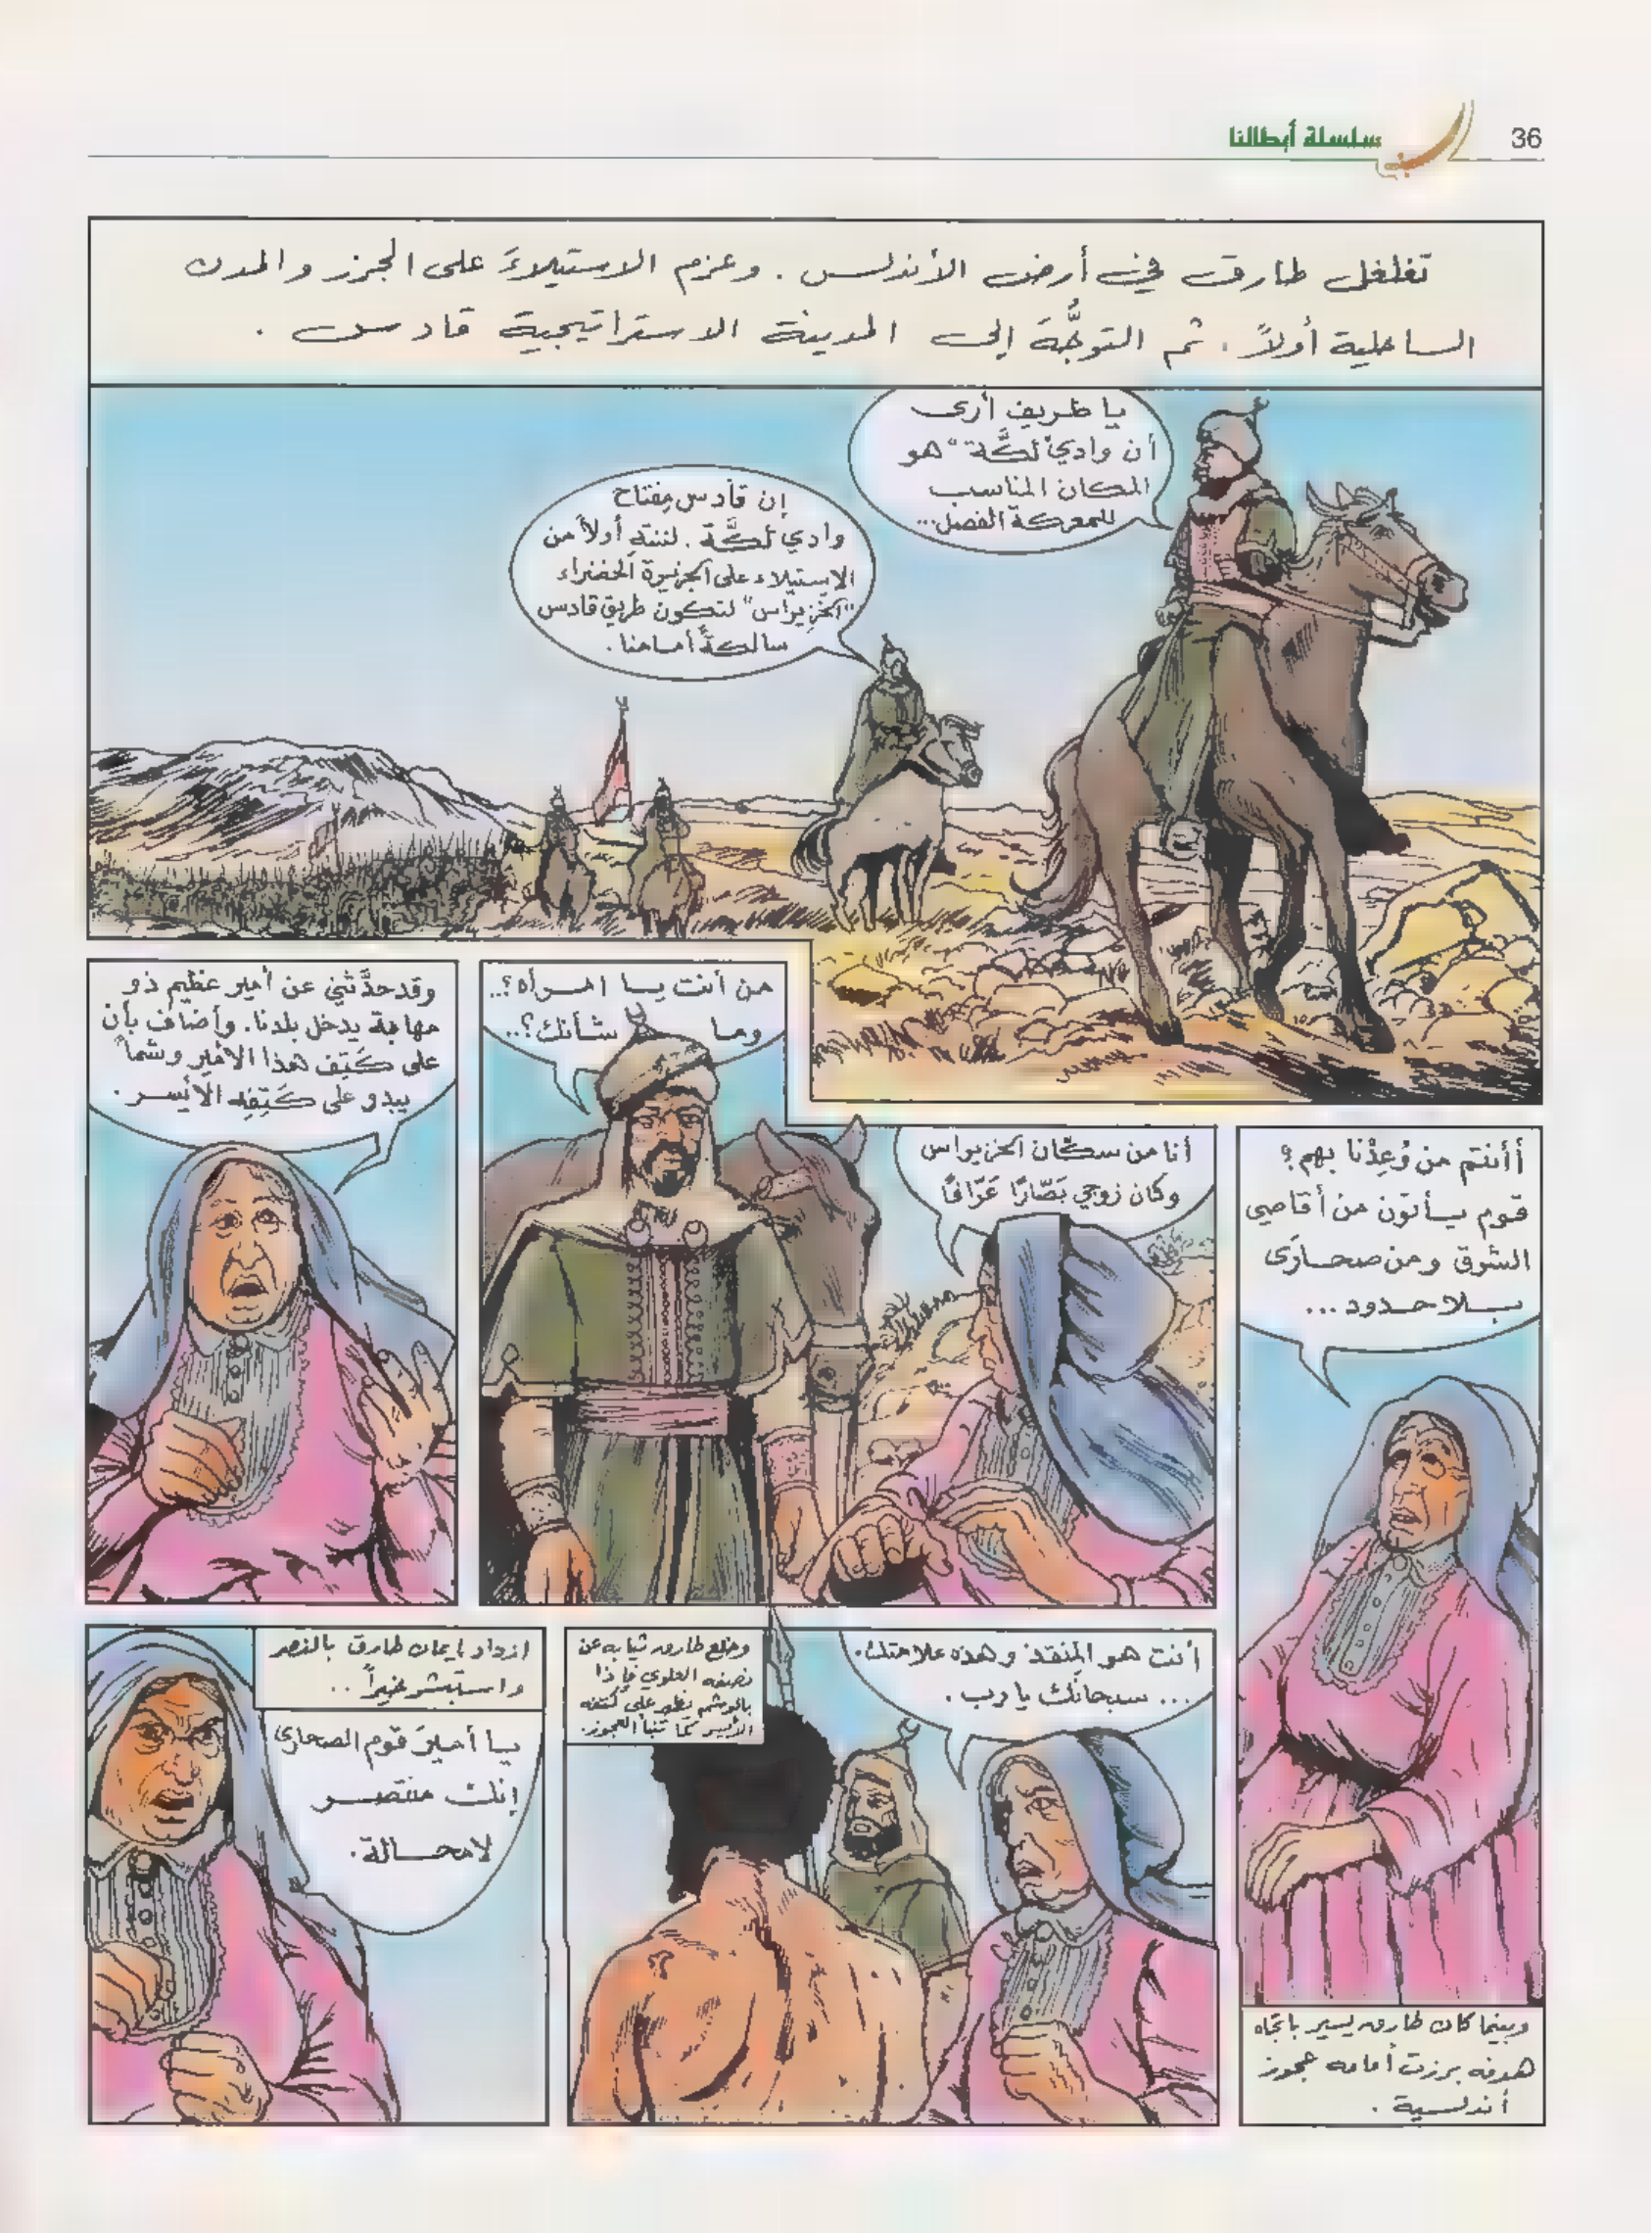 36
سلسلة أبطالنا
تغلغل طارق في أرض الأندلس . وعزم الاستيلاءَ على الجزر والمدن
الساحلية أولاً ، ثم التوجُّهَ إلى المدينة الاستراتيجية قادس .
يا طريف أرى
أن وادي لَكَّة" هو
المكان المناسب
للمعركة الفصل...
إن قادس مفتاح
وادي لكَّة . لننتهِ أولاً من
الاستيلاء على الجزيرة الخضراء
"الخزيراس" لتكون طريق قادس
سالكةً أمامنا .
أأنتم من وُعِدْنا بهم ؟
قوم يأتون من أقاصي
الشرق ومن صحارَى
بلا حدود ...
وبينما كان طارق يسير باتجاه
هدفه برزت أمامه عجوز
أندلسية .
من أنت يا امرأة ؟..
وما شأنك ؟..
أنا من سكّان الخزيراس
وكان زوجي بَصّارًا عَرّافًا
وقد حدَّثني عن أمير عظيم ذو
مهابة يدخل بلدنا. وأضاف بأن
على كَتِف هذا الأمير وشماً
يبدو على كَتِفِه الأيسر .
أنت هو المنقذ وهذه علامتك.
... سبحانك يا رب .
وخلع طارق ثيابه عن
نصفه العلوي فإذا
بالوشم يظهر على كتفه
الأيسر كما تنبأ العجوز.
ازداد إيمان طارق بالنصر
واستبشر خيراً ..
يا أميرَ قوم الصحارى
إنك منتصر
لا محالة .